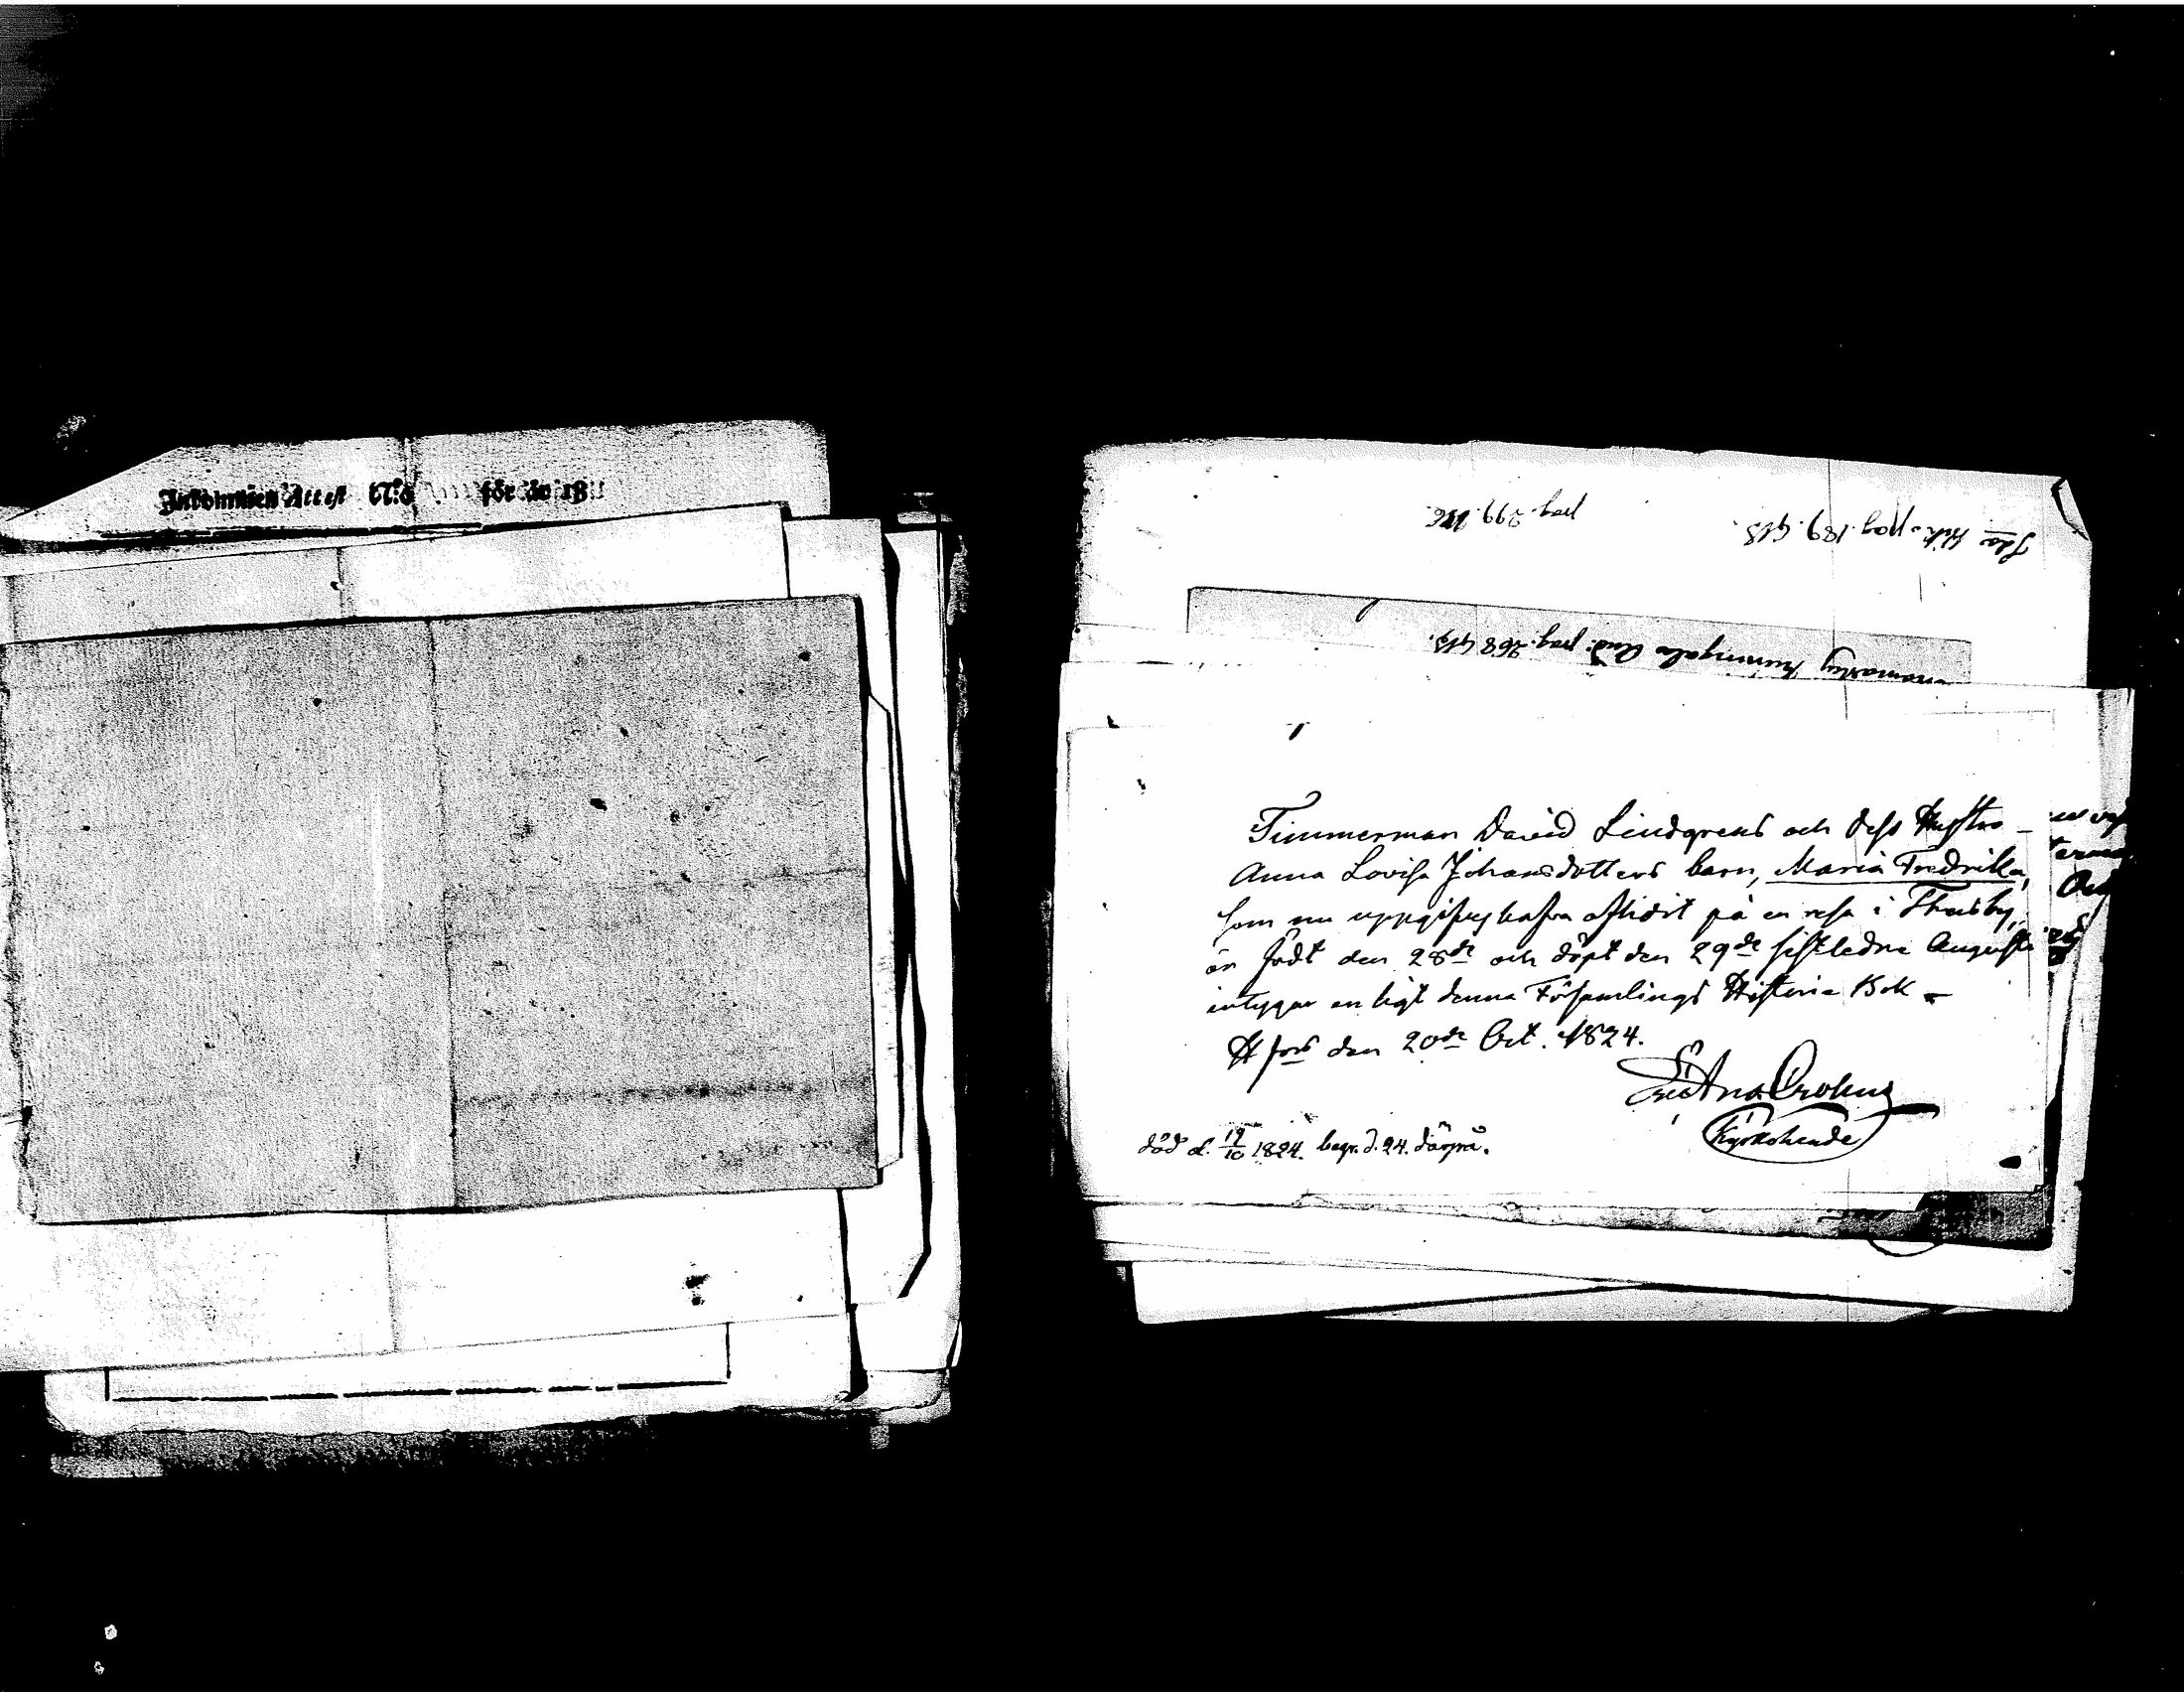 Inkommen Attest N:o för år 18
pag. 299.
pag. 189.
pag. 268
Timmerman David Lindgrens och dess Hustro
Anna Lovisa Johansdotters barn, Maria Fredrika,
som nu uppgifves hafva aflidit på en resa i Thusby,
är födt den 28de och döpt den 29de sistledne Augusti
intygar enligt denna Församlings Historie Bok
H:fors den 20de Oct. 1824.
Crohns
Kyrkoherde
död d. 19/10 1824. begr. d. 24. därpå.